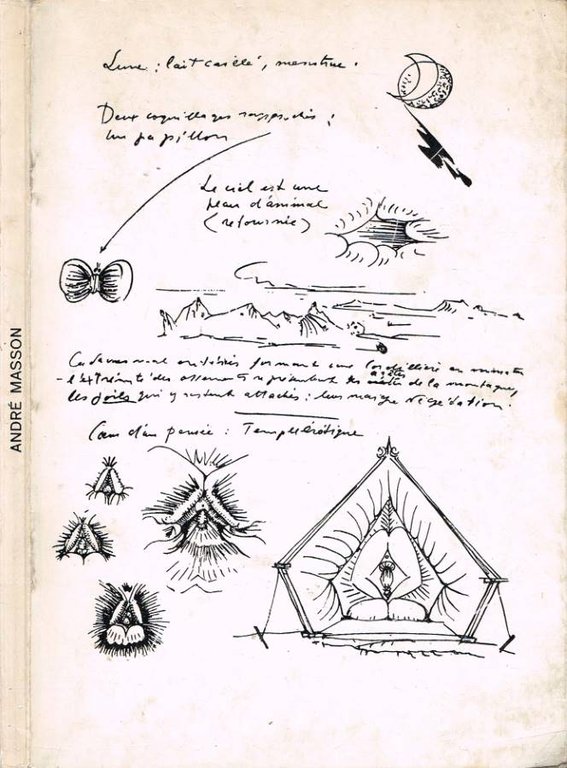 ANDRÉ MASSON
Lune : lait caillé, menstrue.
Deux coquillages rapprochés :
un papillon
Le ciel est une
peau d'animal
(retournée)
Cadavres mal enterrés formant une
- l'extrémité des ossements représentent les de la montagne,
les poils qui y restent attachés : leur maigre végétation.
Cœur d'un pensée : Temple érotique